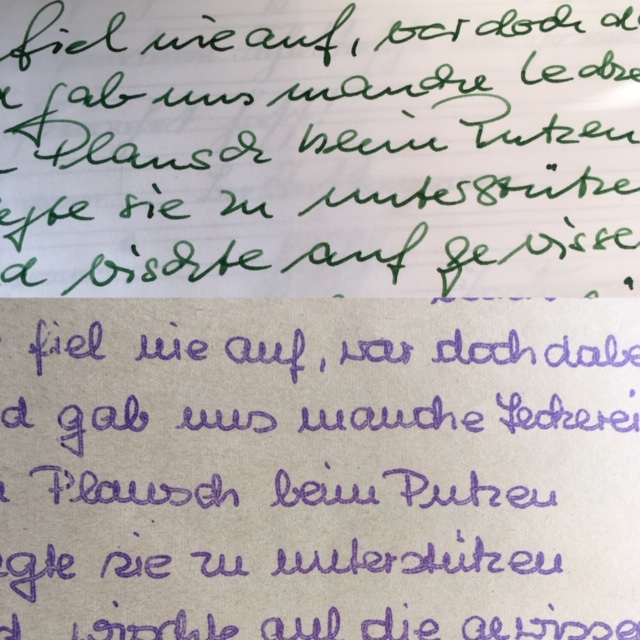 fiel nie auf, war doch d
gab uns manche Lecke
Plausch beim Putzen
egte sie zu unterstütze
d wischte auf gewisse
fiel nie auf, war doch dabe
d gab uns manche Leckerei
Plausch beim Putzen
egte sie zu unterstützen
d wischte auf die gewisse